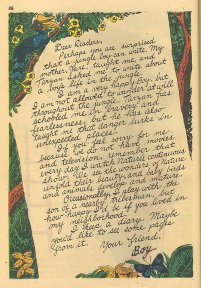 46
Dear Readers:
Perhaps you are surprised
that a jungle boy can write. My
mother, Jane, taught me, and
Tarzan asked me to write about
a boy's life in the jungle.
I am a very happy boy, but
I am not allowed to wander at will
throughout the jungle. Tarzan has
schooled me in bravery and
fearlessness, but he has also
taught me that danger lurks in
unexpected places.
Do you feel sorry for me
because I do not have movies
and television, remember that
every day I watch Nature's continuous
show. I see the wonders of Nature
unfold their beauty, and only birds
and animals develop and mature.
Occasionally, I play with the
son of a nearby tribesman, but
how happy I'd be if you lived in
my neighborhood.
I keep a diary. Maybe
you'd like to see some pages
from it.
Your friend,
Boy